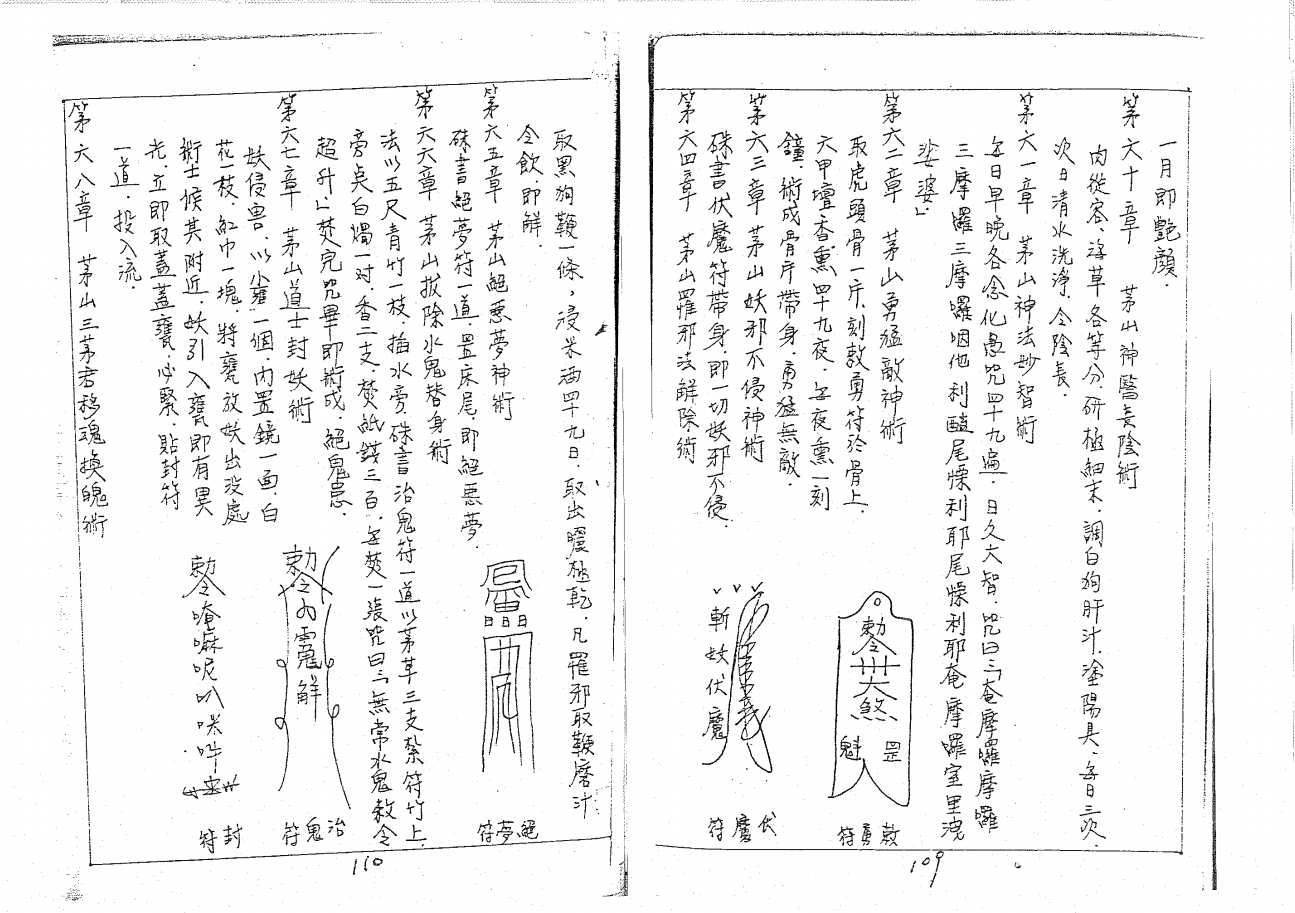 一月即艷顏.
第六十章　茅山神醫長陰術
肉從容、海草各等分、研極細末、調白狗肝汁、塗陽具、每日三次、
次日清水洗淨、令陰長.
第六一章　茅山神法妙智術
每日早晚各念化愚咒四十九遍．日久大智．咒曰「奄摩囉摩囉
三摩囉三摩囉咽他利醯尾𢠵利耶尾𢠵利耶奄摩囉室里濘
娑婆」
第六二章　茅山勇猛敵神術
取虎頭骨一片、刻敕勇符於骨上、
六甲壇香熏四十九夜、每夜熏一刻
鐘、術成骨片帶身、勇猛無敵.
第六三章　茅山妖邪不侵神術
硃書伏魔符帶身、即一切妖邪不侵.
第六四章　茅山罹邪法解除術
勅令
大煞
魁罡
敕勇符
斬妖伏魔
伏魔符
109
取黑狗鞭一條，浸米酒四十九日、取出曬極乾、凡罹邪取鞭磨汁
令飲、即解.
第六五章　茅山絕惡夢神術
硃書絕夢符一道、置床尾、即絕惡夢.
第六六章　茅山拔除水鬼替身術
法以五尺青竹一枝、插水旁、硃書治鬼符一道以茅草三支紮符竹上、
旁点白燭一对、香二支、焚紙錢三百、每焚一張咒曰「無常水鬼敕令
超升」焚完咒畢即術成、絕鬼患.
第六七章　茅山道士封妖術
妖侵害、以小甕一個、內置鏡一面、白
花一枝、紅巾一塊、將甕放妖出没處
術士候其附近、妖引入甕即有異
光、立即取蓋蓋甕、必緊、貼封符
一道、投入流.
第六八章　茅山三茅君移魂換魄術
日日日
絕夢符
勅令
解
治鬼符
勅令唵嘛呢叭咪吽
封符
110